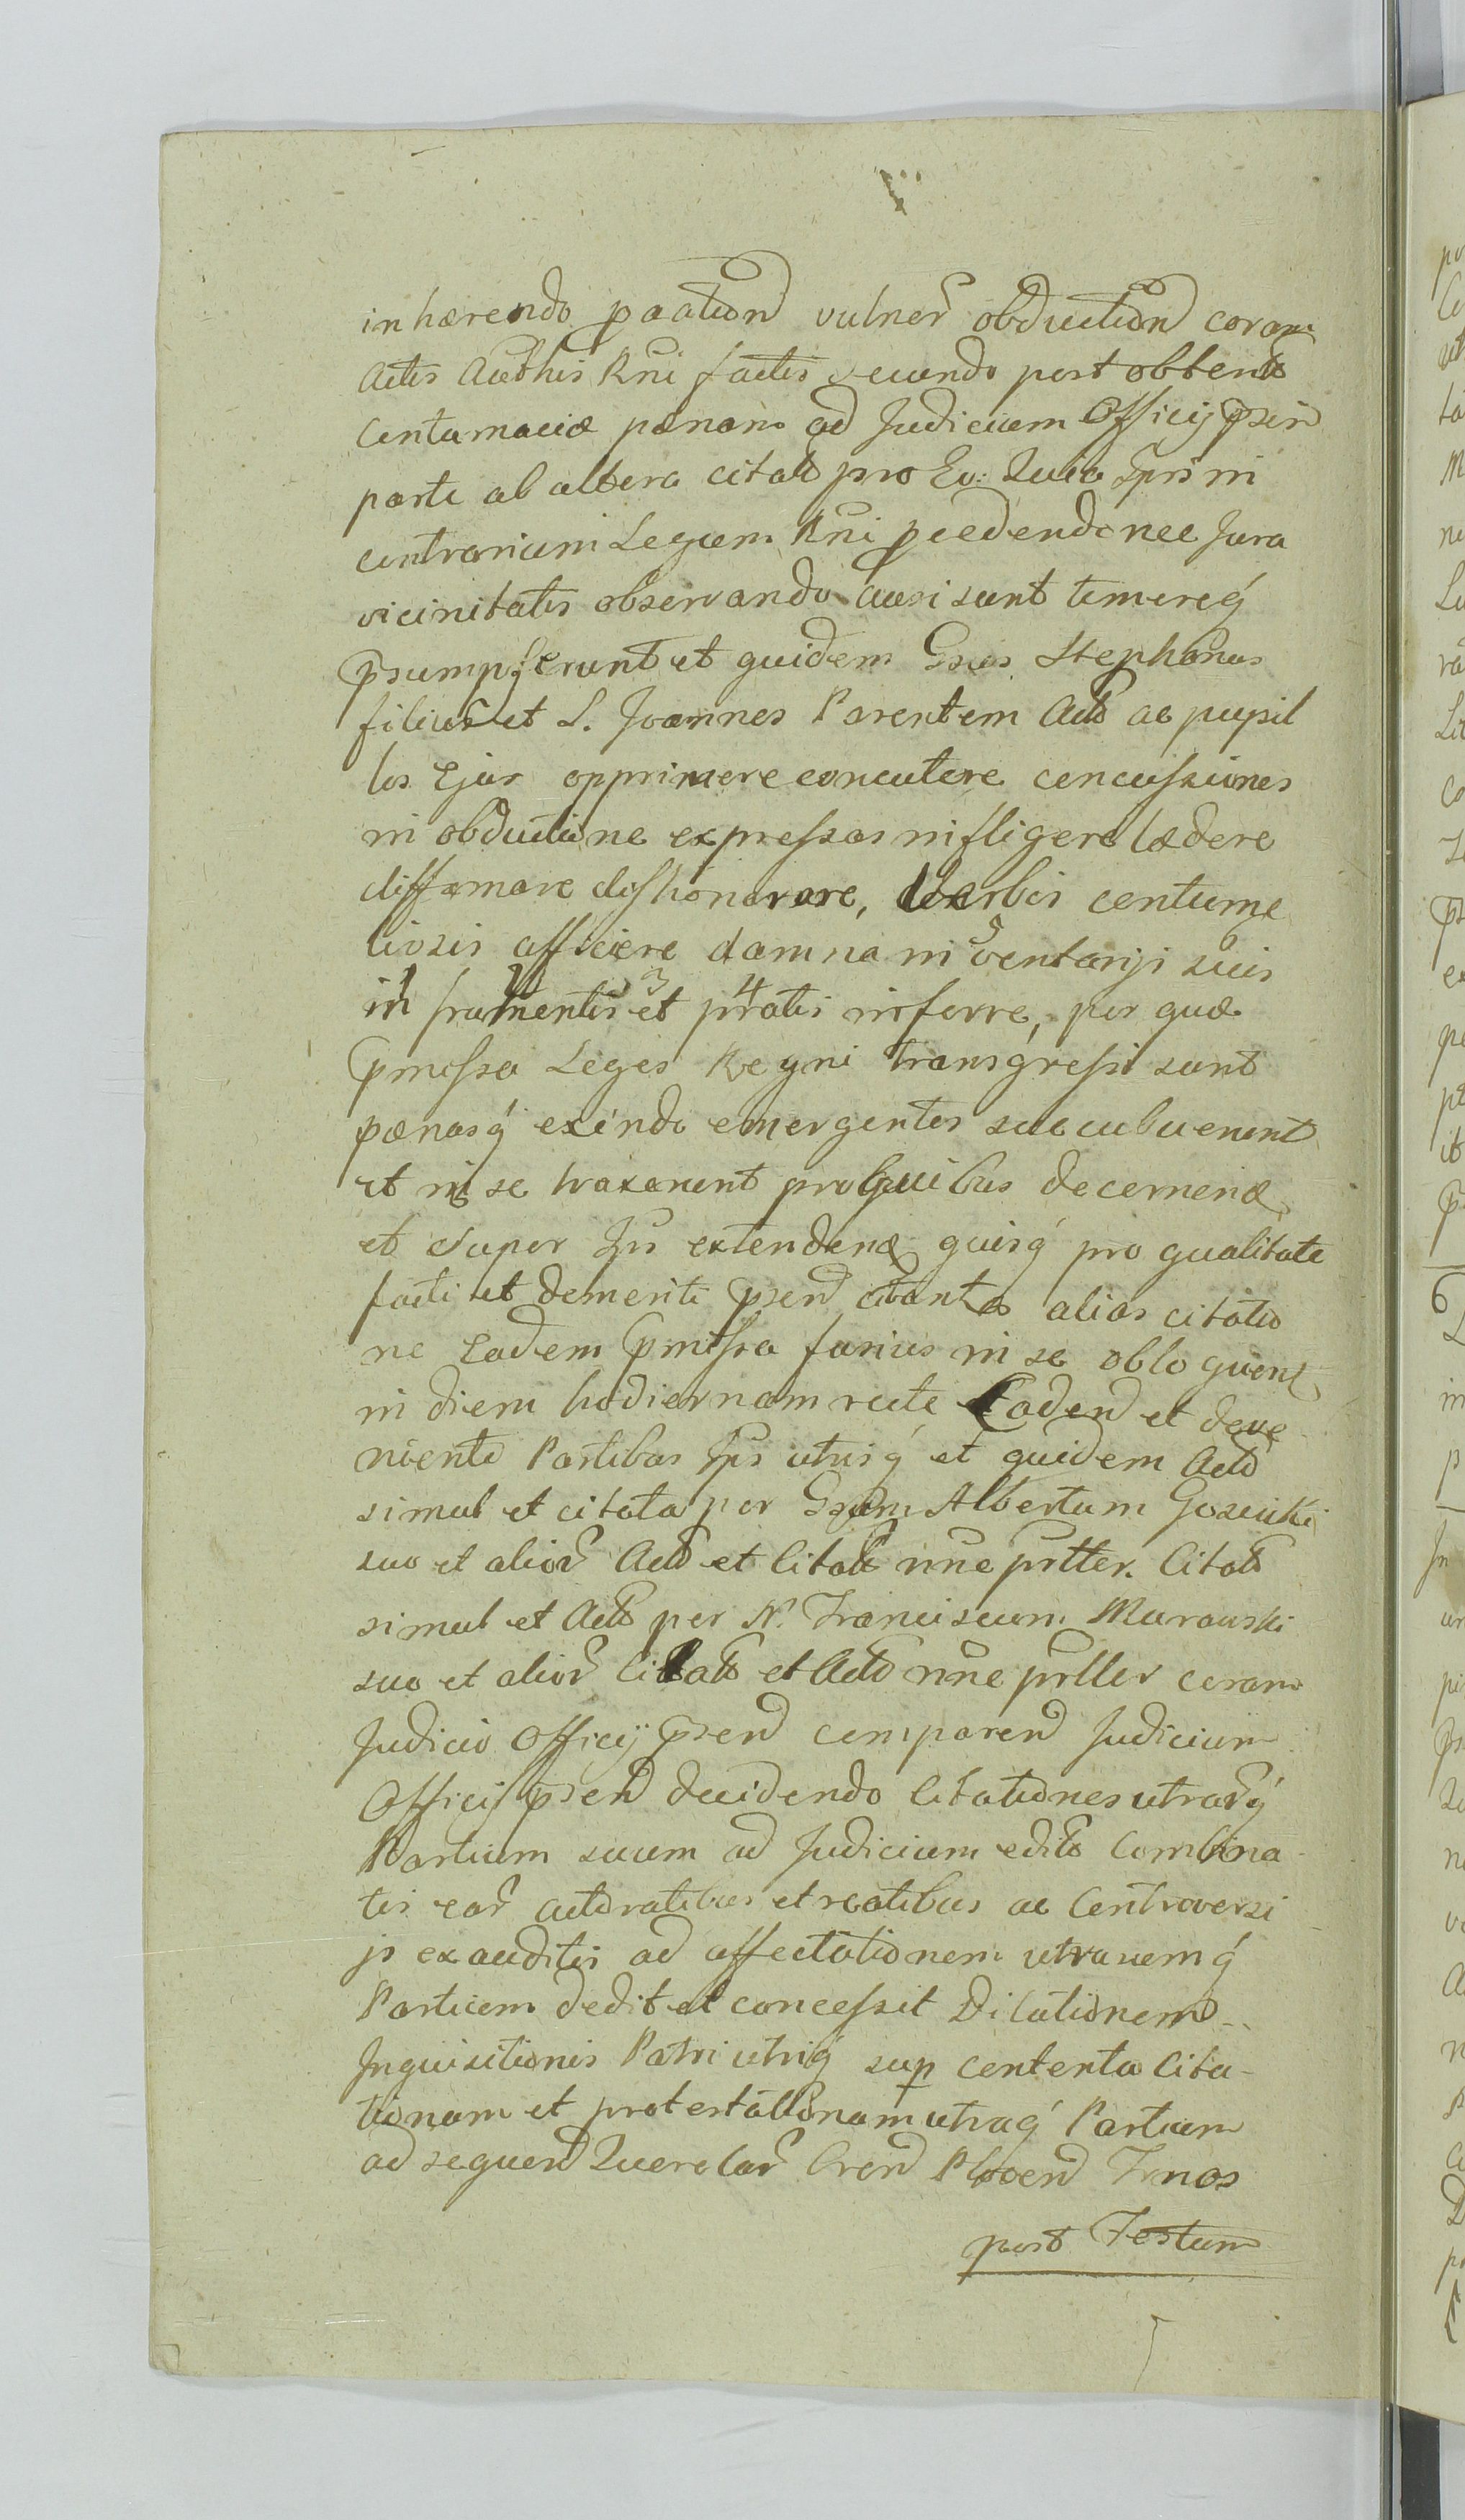 inhærendo pāatiōn vulner obductiōn coram
Actis Aūthis Rnī factis secundo post obtent
contumaciæ pænam ad Judicium Officij p̄sen
parte ab altera citat pro Eo: Quia Ipsi in
contrarium Legum Rnī p̄cedendo nec Jura
vicinitatis observando ausi sunt temereq́
p̄sumpserunt et quidem Gsus Stephanus
filius et L. Joannes Parentem Act ac pupil
los Ejus opprimere concutere concussiones
in obductione expressas infligere lædere
diffamare dishonorare, Verbis contume
liosis afficere damna in 5 ventarijs suis
in frumentis 3 et 4 pratis inferre, per quæ
p̄missa Leges Regni transgressi sunt
pænasq́ exinde emergentes succubuerunt
et in se traxerunt pro quibus decernend
et super Ipīs extendend quisq́ pro qualitate
facti et demeriti p̄sen citantes alias citatio
ne Eadem p̄missa fusius in se obloquent
in diem hodiernam recte Caden et deve
niente Partibus Ipīs utrisq́ et quidem Act
simul et citata per Gsum Albertum Gosicki
suo et alior Act et Citat nñe p̄tter. Citat
simul et Act per N. Franciscum Murawski
suo et alior Citat et Act nñe p̄tter coram
Judicio Officij p̄sen comparen Judicium
Officij p̄sen decidendo Citationes utrarq́
Partium suum ad Judicium edit Combina-
tis ear actoratibus et reatibus ac Controversi
js exauditis ad affectationem utrarumq́
Partium dedit et concessit Dilationem
Inquisitionis Parti utriq́ sup contenta Cita-
tionum et protestationum utraq́ Partium
ad sequen Querelar Cren Plocen Trnos
post Festum